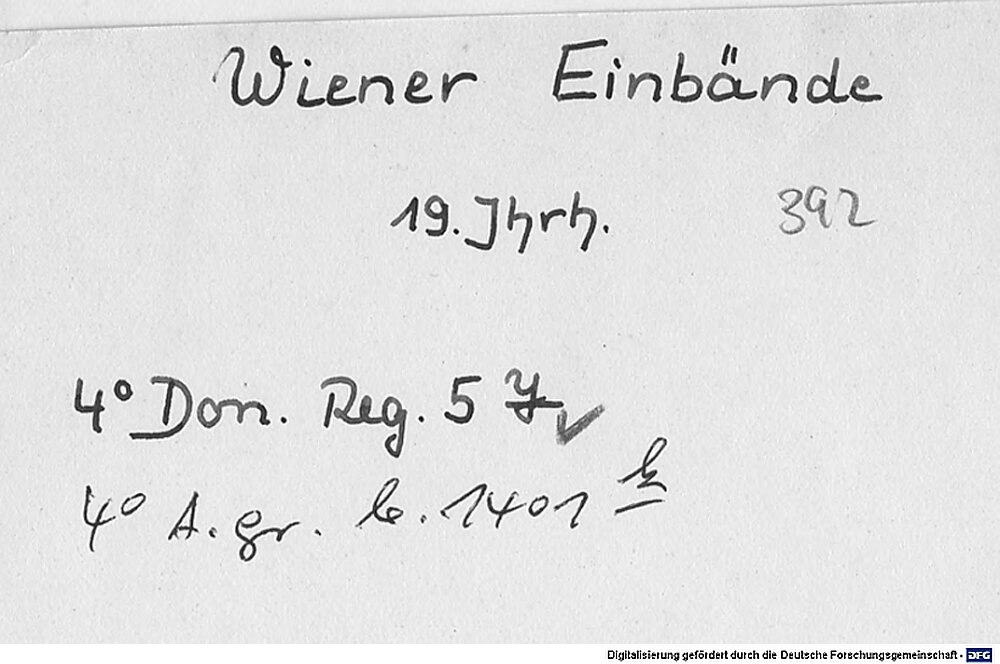 Wiener Einbände
19. Jhrh. 392
4° Don. Reg. 5 y
4° A. gr. b. 1401 k
Digitalisierung gefördert durch die Deutsche Forschungsgemeinschaft - DFG